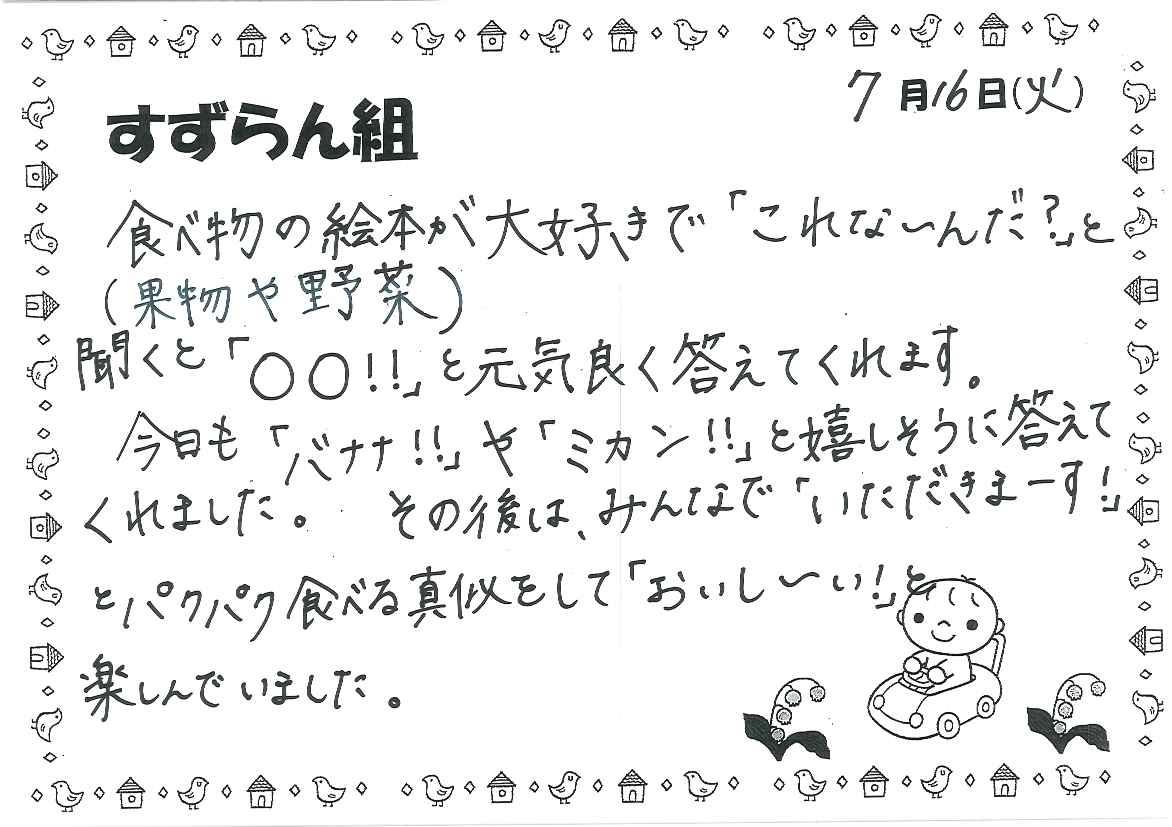 7月16日(火)
すずらん組
食べ物の絵本が大好きで「これな〜んだ?」と
(果物や野菜)
聞くと「〇〇!!」と元気良く答えてくれます。
今日も「バナナ!!」や「ミカン!!」と嬉しそうに答えて
くれました。 その後は、みんなで「いただきまーす!」
とパクパク食べる真似をして「おいし〜い!」と
楽しんでいました。